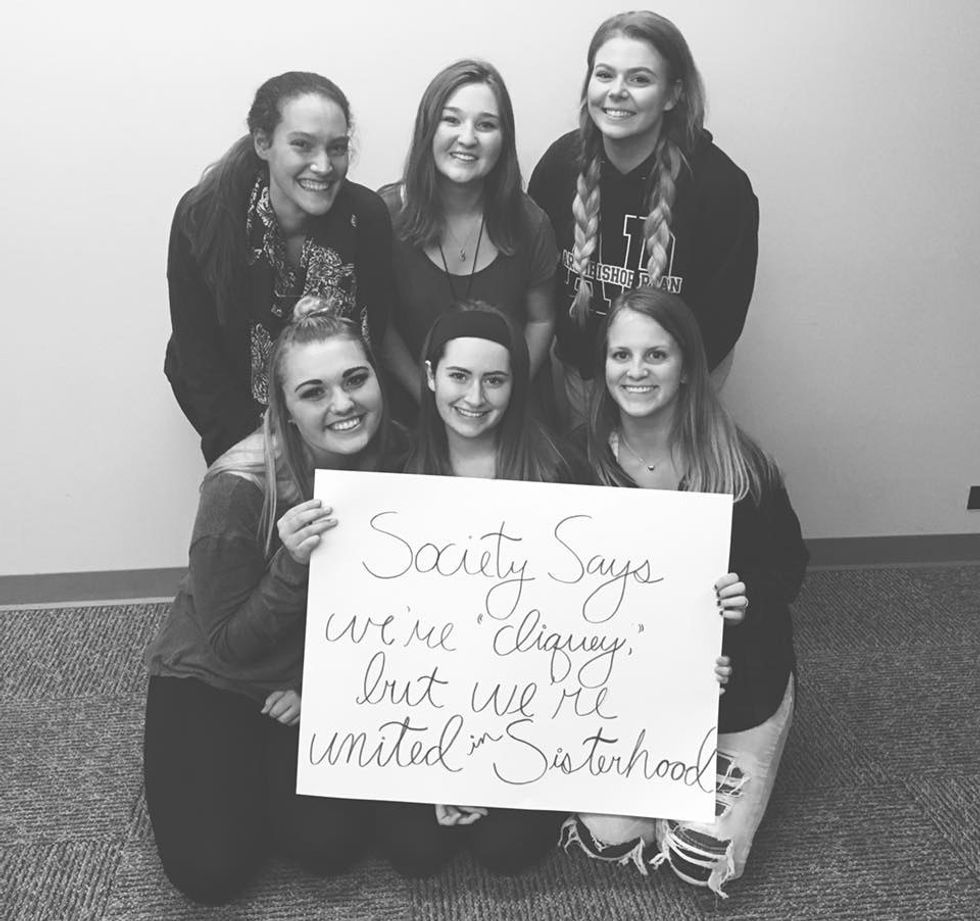 ARCHBISHOP RYAN
Society Says
we're "cliquey,"
but we're
united in Sisterhood